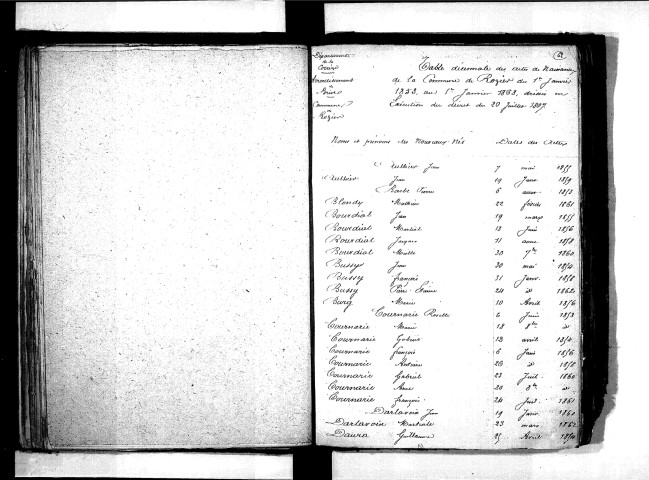 Département
de la
Corrèze
Arrondissement
de
Brive
Commune
de
Rozier
Table décennale des actes de Naissance
de la Commune de Rozier du 1er Janvier
1853 au 1er Janvier 1863, dressée en
Exécution du décret du 20 Juillet 1807
Noms et prénoms des Nouveaux Nés Dates des Actes
Jean 7 mai 1855
Jean 19 Janv 1859
Barbe Pierre 6 1853
Blondy Mathieu 22 février 1861
Bourdial Jean 19 mars 1855
Bourdial Martial 13 Juin 1856
Bourdial Jacques 11 1858
Bourdial 30 7bre 1860
Bussy Jean 30 mai 1854
Bussy françois 31 Janv 1858
Bussy Pierre 24 d 1862
Burg Marie 10 Avril 1856
Cournarie 6 Juin 1853
Cournarie Marie 18 8bre d
Cournarie Gabriel 13 avril 1854
Cournarie françois 6 Juin 1856
Cournarie Antoine 26 d 1858
Cournarie Gabriel 23 Juil 1860
Cournarie Anne 20 8bre d
Cournarie françois 24 Juil 1861
Darlavoix Jean 19 Janv 1860
Darlavoix Martiale 23 mars 1862
Daura Guillaume 25 Avril 1854